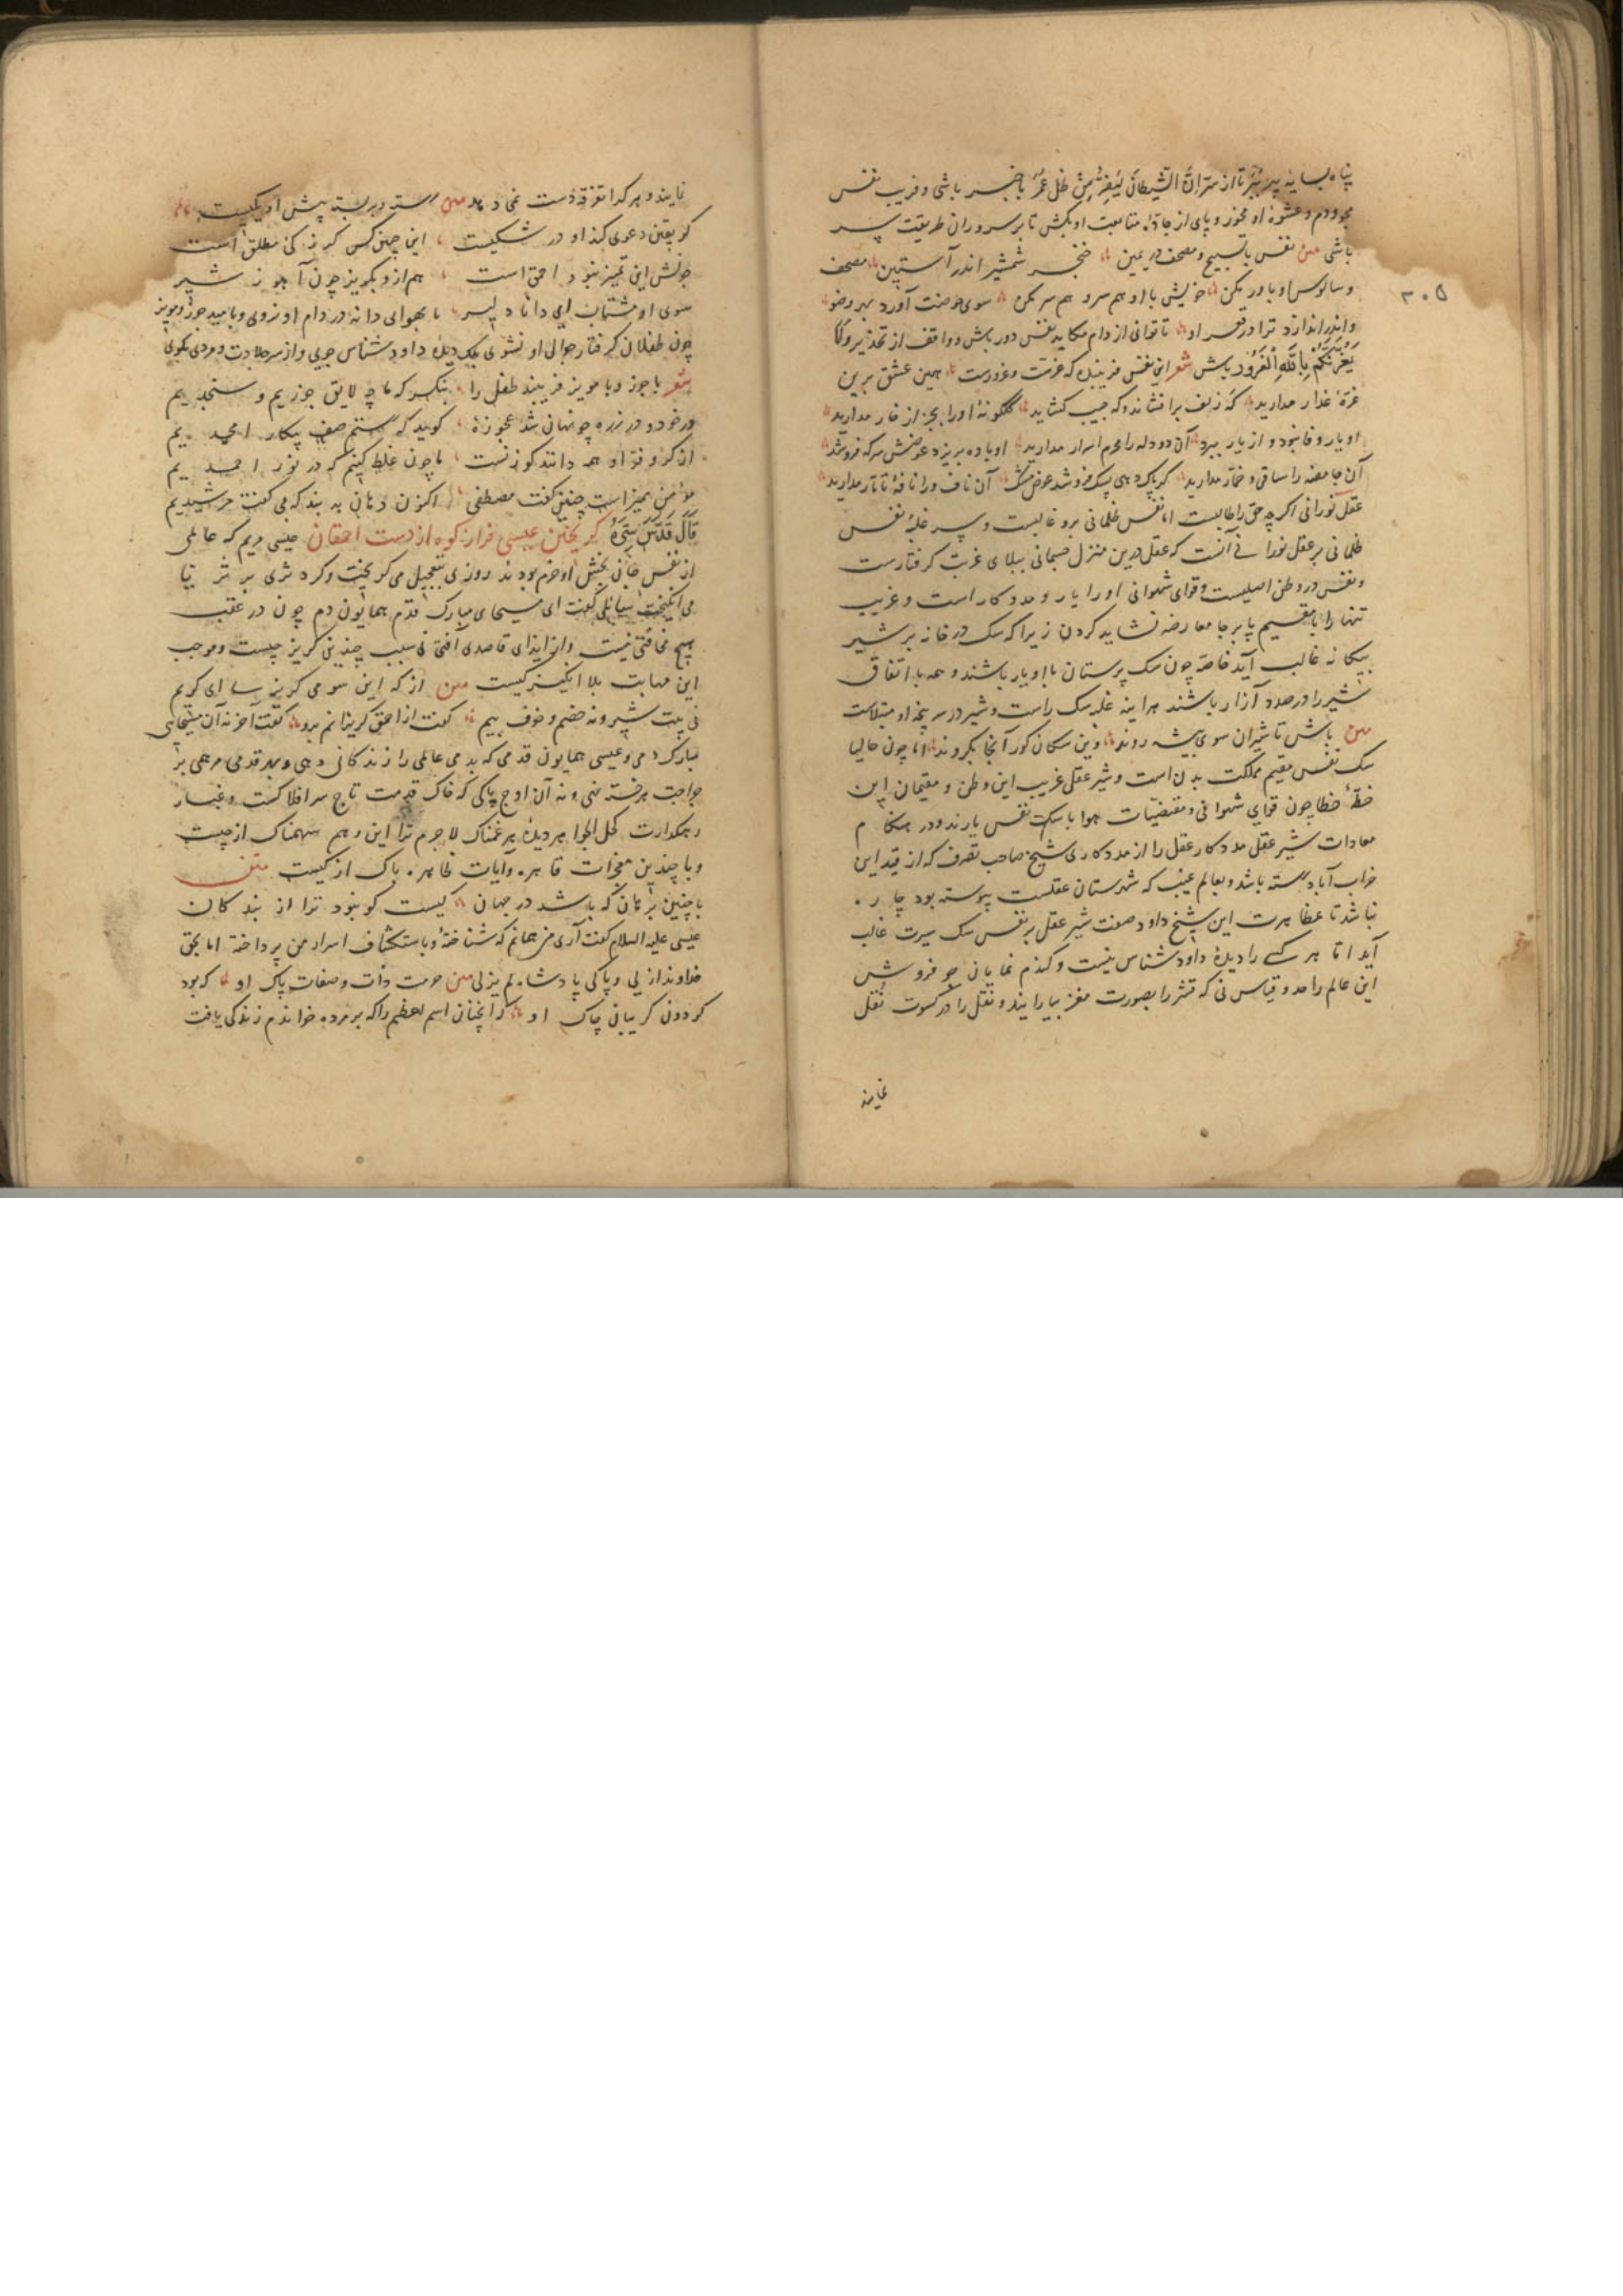 پناه بسایه پیر بر تا از سر انّ الشیطان لیفر من ظل عمر باخبر باشی و فریب نفس
مخور و دم و عشوهٔ او مخور و پای از جادهٔ متابعت او مکش تا بر سروران طریقت سر
باشی متن نفس با تسبیح و مصحف در یمین خنجر شمشیر اندر آستین مصحف
و سالوس او باور مکن خویش با او هم سر و هم سر مکن سوی حوضت آورد بهر وضو
و اندر اندازد ترا در قعر او تا توانی از دام مکاید نفس دور باش و واقف از تحذیر و لا
یغرنّکم بالله الغرور باش شعر این نفس فریبنده که غرّست و غرورست همین عشق برین
غرّهٔ غدار مدارید که زلف برافشاند و که جیب کشاید گلگونهٔ او را بجز از خار مدارید
او یار وفا نبود و از یار ببرد آن دودله را محرم اسرار مدارید او باده بریزد عوضش سرکه فروشد
آن حامضه را ساقی و خمّار مدارید کر پاک دهی پشک فروشد عوض مشک آن ناف ورا نافهٔ تاتار مدارید
عقل نورانی اگرچه حق را طالبست اما نفس ظلمانی برو غالبست و سر غلبهٔ نفس
ظلمانی بر عقل نورانی آنست که عقل درین منزل جسمانی ببلای غربت گرفتارست
و نفس در وطن اصلیست و قوای شهوانی او را یار و مددکار است و غریب
تنها را با مقیم پابرجا معارضه نشاید کردن زیرا که سک در خانه بر شیر
بیکانه غالب آید خاصه چون سک پرستان با او یار باشند و همه با اتفاق
شیر را در صدد آزار باشند هر اینه غلبه سک راست و شیر در سرپنجهٔ او مبتلاست
متن باش تا شیران سوی بیشه روند وین سکان کور آنجا بگروند اما چون حالیا
سک نفس مقیم مملکت بدن است و شیر عقل غریب این وطن و مقیمان این
خطّهٔ خطا چون قوای شهوانی و مقتضیات هوا با سک نفس یارند و در هنکام
معادات شیر عقل مددکار عقل را از مددکاری شیخ صاحب تصرف که از قید این
خراب آباد رسته باشد و بعالم غیب که شهرستان عقلست پیوسته بود چاره
نباشد تا بمظاهرت این شیخ داود صفت شیر عقل بر نفس سک سیرت غالب
آید اما هر کسے را دیدهٔ داودشناس نیست و کندم نمایان جو فروش
این عالم را حد و قیاس نی که قشر را بصورت مغز بیارایند و نقل را در کسوت نقل
نمایند
۳۰۵
نمایند و هر کدا تفرقه دست نمی دهد متن رسته و بر بسته پیش او یکیست
کر یقین دعوی کند او در شکیست این چنین کس کر ذکی مطلق است
چونش این تمییز نبود احمق است هم ازو بکریز چون آهو ز شیر
سوی او مشتاب ای دانا دلیر تا بهوای دانه در دام او نروی و بامید جوز و مویز
چون طفلان گرفتار جوالی او نشوی بلک دیدهٔ داود شناس جویی و از سر جلادت و مردی بکوی
شعر با جوز و با مویز فریبند طفل را بنکر که ما چه لایق جوزیم و سنجدیم
در خود و در زره چو نهان شد عجوزهٔ کوید که رستم صف پیکار امجدیم
از کر و فر او همه دانند کو زنست ما چون غلط کنیم که در نور احمدیم
مؤمن ممیزاست چنین گفت مصطفی اکنون دهان ببند که بی گفت مرشدیم
قال قدّس سرّه گریختن عیسی فراز کوه از دست احمقان عیسی مریم که عالمی
از نفس جان بخش او خرم بودند روزی بتعجیل می گریخت و کرد ثری بر ثریا
می انگیخت سایلی گفت ای مسیحای مبارک قدم همایون دم چون در عقب
هیچ مخافتی نیست و از ایذای قاصدی افتی نی سبب چندینی گریز چیست و موجب
این مهابت بلا انگیز کیست متن از که این سو می گریزی ای کریم
نی پیت شیر و نه خصم و خوف بیم گفت از احمق گریزانم برو گفت آخر نه آن مسیحایی
مبارک دمی و عیسی همایون قدمی که بدمی عالمی را زندگانی دهی و بهر قدمی مرهمی بر
جراحت هر خسته نهی و نه آن اوج پاکی که خاک قدمت تاج سر افلاکست و غبار
رهکذارت کحل الجواهر دیدهٔ هر غمناک لاجرم ترا این وهم سهمناک از چیست
و با چندین معجزات قاهره و آیات ظاهره باک از کیست متن
با چنین برهان که باشد در جهان کیست کو نبود ترا از بندکان
عیسی علیه السلام گفت آری من همانم که شناختهٔ و باستکشاف اسرار من پرداختهٔ اما بحق
خداوند ازلی و پاکی پادشاه لم یزلی متن حرمت ذات و صفات پاک او که بود
کردون کریبان چاک او که آنچنان اسم اعظم را که بر مرده خواندم زندگی یافت